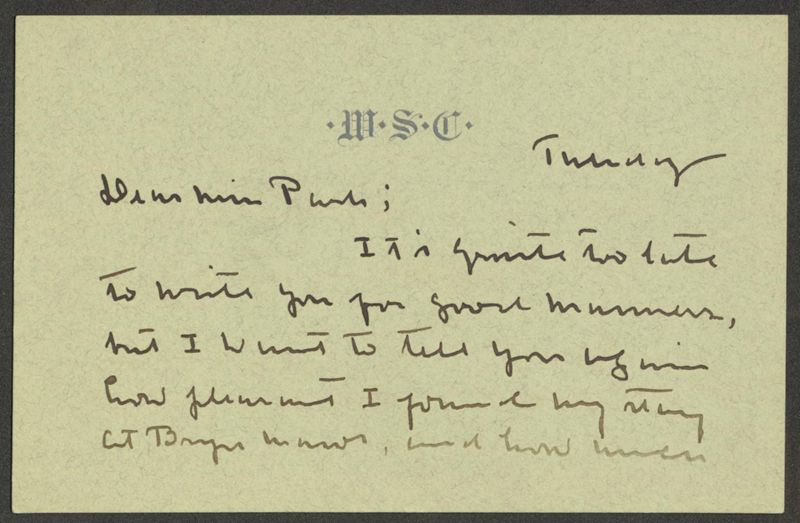 ·W·S·C·
Tuesday
Dear Miss Park;
It's quite too late
to write you for good manners,
but I want to tell you again
how pleasant I found my stay
at Bryn Mawr, and how much